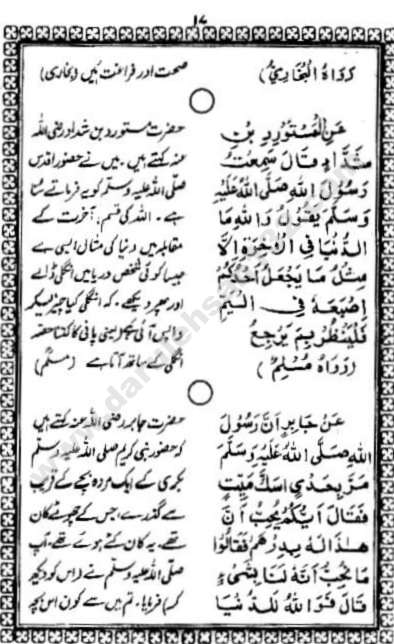 ١٧
رَوَاهُ الْبُخَارِيُّ)
عَنِ الْمُسْتَوْرِدِ بْنِ
شَدَّادٍ قَالَ سَمِعْتُ
رَسُوْلَ اللهِ صَلَّى اللهُ عَلَيْهِ
وَسَلَّمَ يَقُوْلُ وَاللهِ مَا
الدُّنْيَا فِي الْاٰخِرَةِ اِلَّا
مِثْلُ مَا يَجْعَلُ اَحَدُكُمْ
اِصْبَعَهٗ فِي الْيَمِّ
فَلْيَنْظُرْ بِمَ يَرْجِعُ
(رَوَاهُ مُسْلِمٌ)
عَنْ جَابِرٍ اَنَّ رَسُوْلَ
اللهِ صَلَّى اللهُ عَلَيْهِ وَسَلَّمَ
مَرَّ بِجَدْيٍ اَسَكَّ مَيِّتٍ
فَقَالَ اَيُّكُمْ يُحِبُّ اَنَّ
هٰذَا لَهٗ بِدِرْهَمٍ فَقَالُوْا
مَا نُحِبُّ اَنَّهٗ لَنَا بِشَيْءٍ
قَالَ فَوَ اللهِ لَلدُّنْيَا
صحت اور فراغت ہیں (بخاری)
حضرت مستورد بن شداد رضی اللہ
عنہ کہتے ہیں۔ میں نے حضور اقدس
صلی اللہ علیہ وسلم کو یہ فرماتے سنا
ہے۔ اللہ کی قسم، آخرت کے
مقابلہ میں دنیا کی مثال ایسی ہے
جیسا کوئی شخص دریا میں انگلی ڈالے
اور پھر دیکھے۔ کہ انگلی کیا چیز لیکر
واپس آئی ہے یعنی پانی کا کتنا حصہ
انگلی کے ساتھ آتا ہے (مسلم)
حضرت جابر رضی اللہ عنہ کہتے ہیں
کہ حضور نبی کریم صلی اللہ علیہ وسلم
بکری کے ایک مردہ بچے کے قریب
سے گذرے، جس کے چھوٹے کان
تھے۔ یہ کان کٹے ہوئے تھے۔ آپ
صلی اللہ علیہ وسلم نے (اس کو دیکھ
کر) فرمایا۔ تم میں سے کون اس بچہ